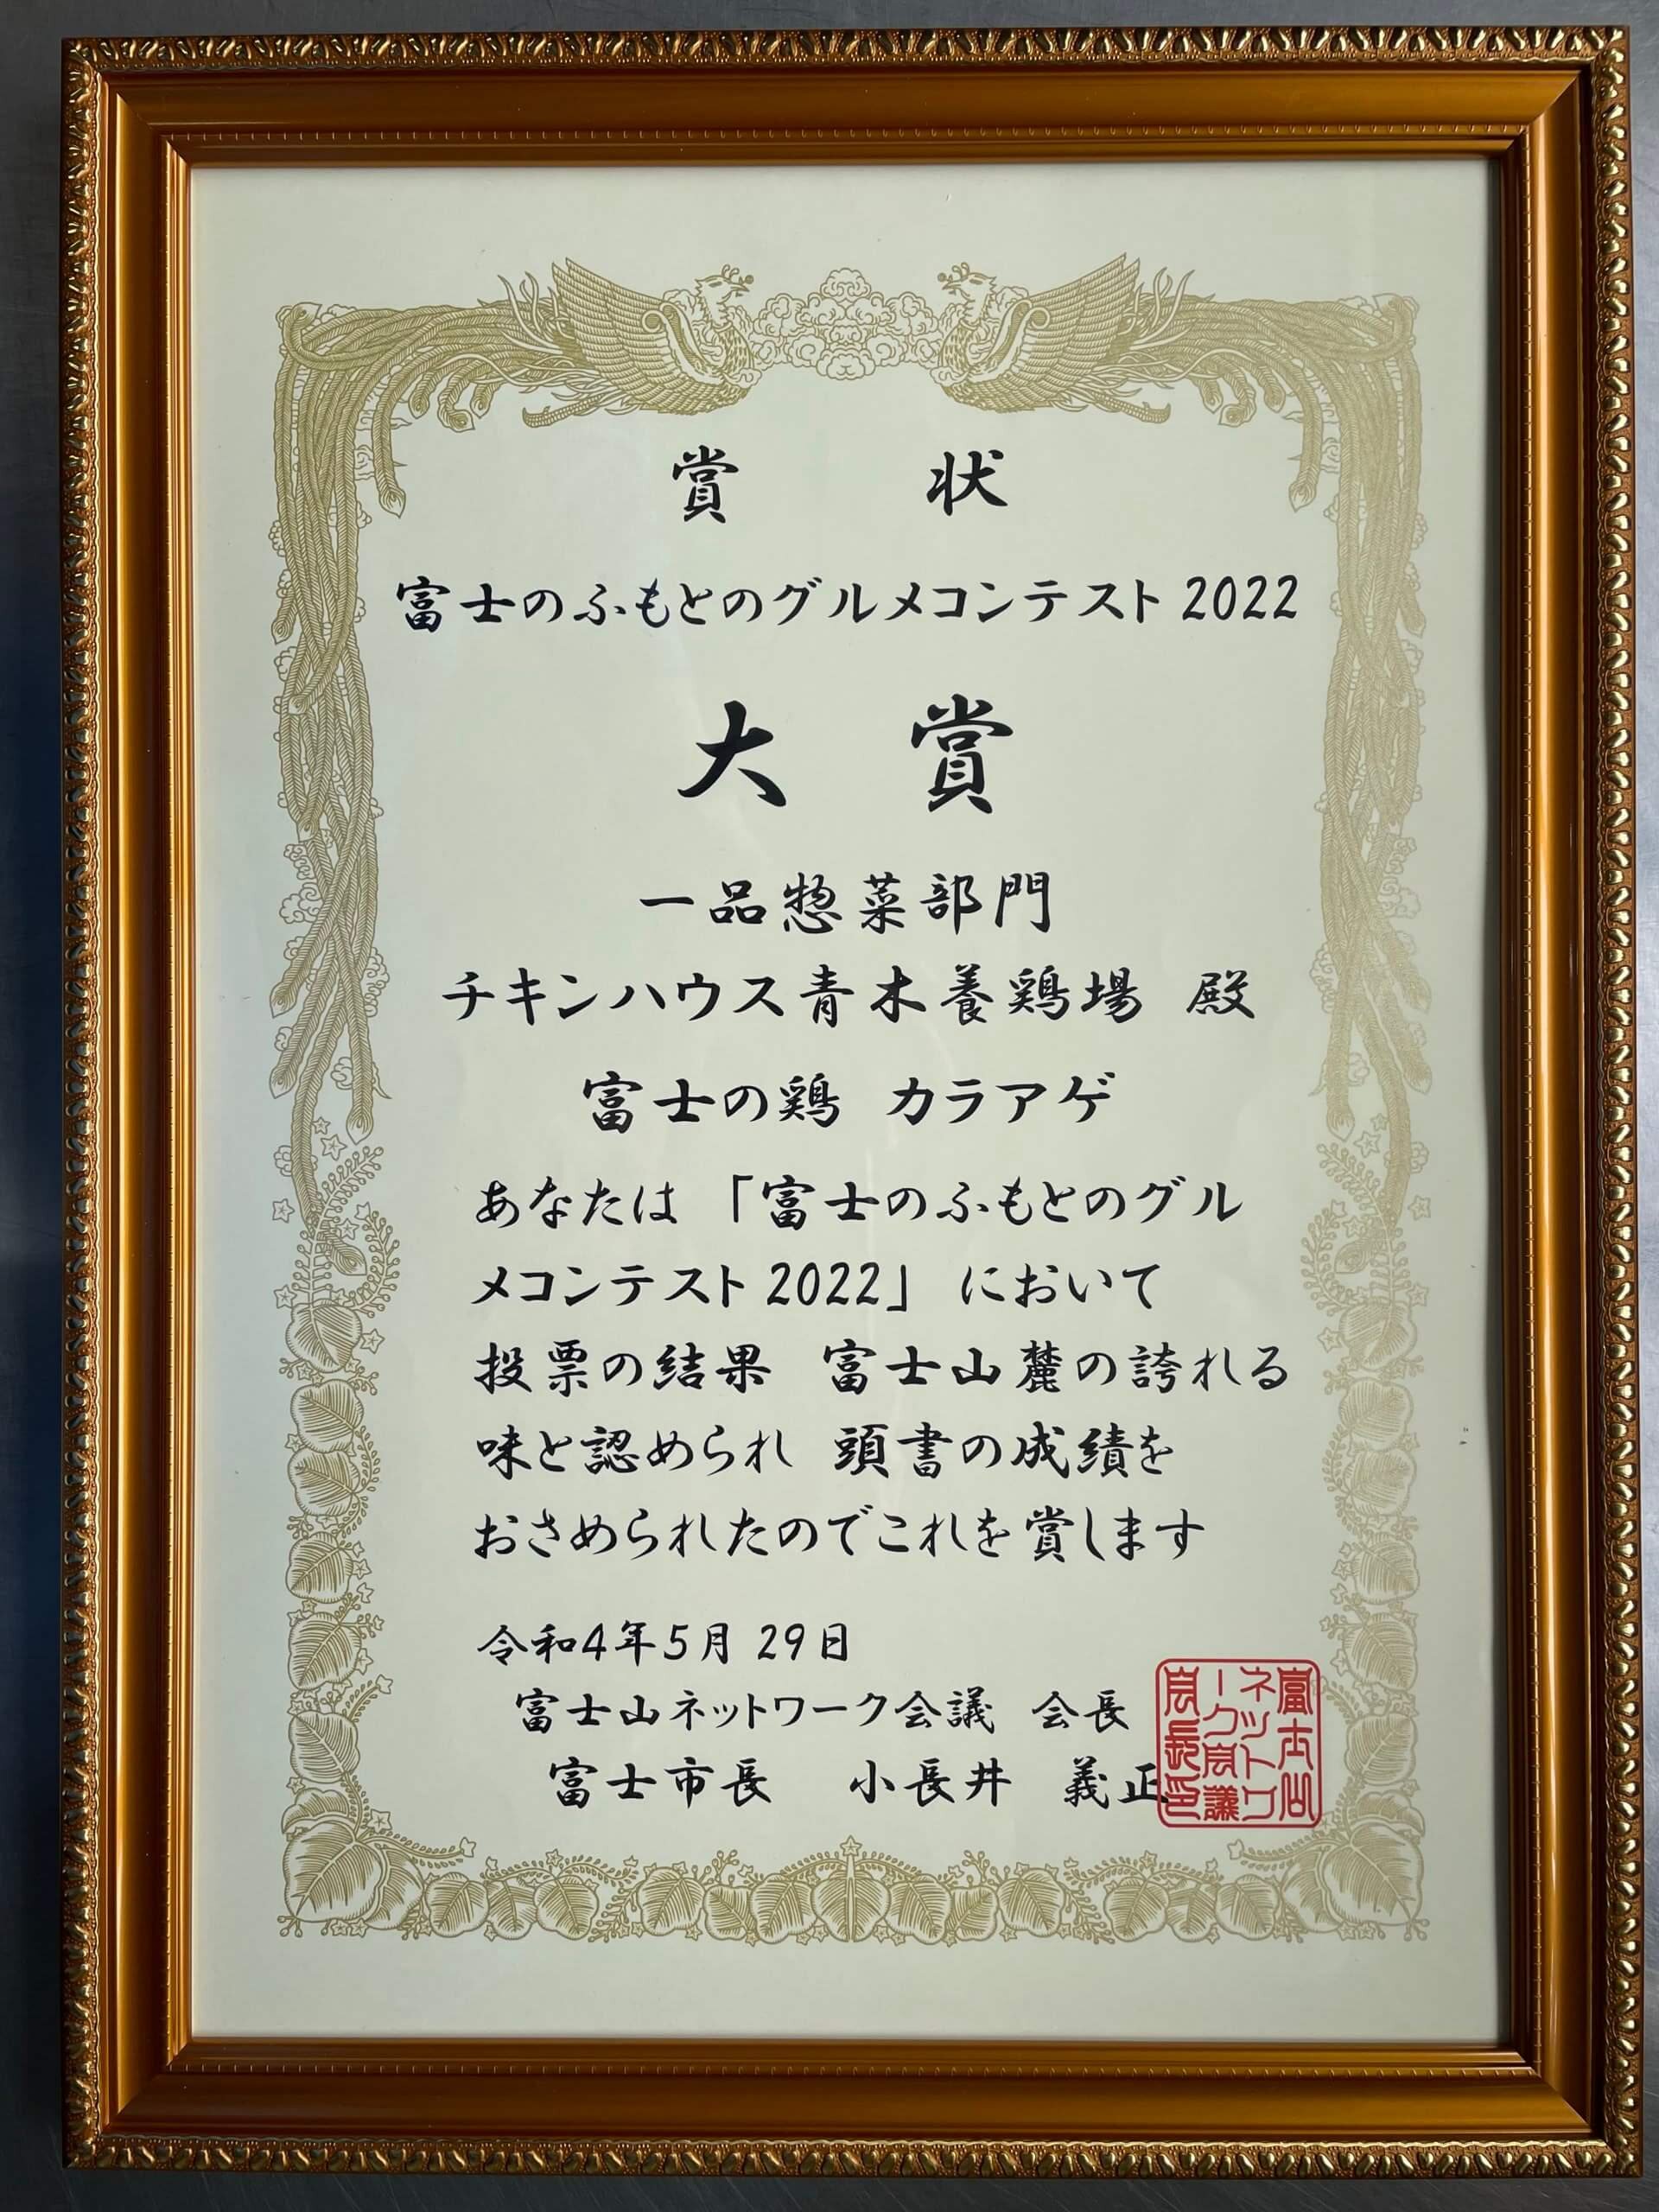 賞 状
富士のふもとのグルメコンテスト 2022
大 賞
一品惣菜部門
チキンハウス青木養鶏場 殿
富士の鶏 カラアゲ
あなたは「富士のふもとのグル
メコンテスト 2022」 において
投票の結果 富士山麓の誇れる
味と認められ 頭書の成績を
おさめられたのでこれを賞します
令和4年5月 29日
富士山ネットワーク会議 会長
富士市長 小長井 義正
富士山
ネットワ
ーク会議
会長印